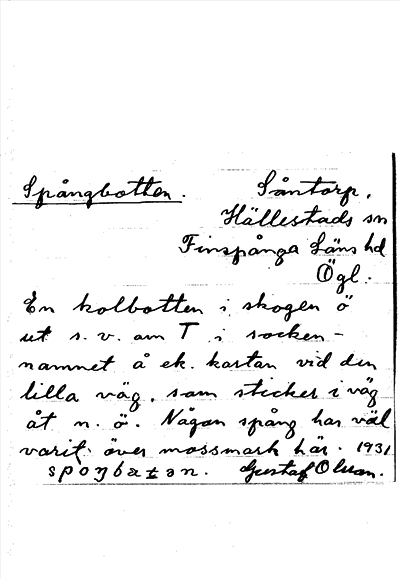 Spångbotten. Såntorp,
Hällestads sn
Finspånga Läns hd
Ögl.
En kolbotten i skogen ö
ut s. v. om T i socken-
namnet å ek. kartan vid den
lilla väg, som sticker i väg
åt n. ö. Någon spång har väl
varit över mossmark här. 1931
Gustaf